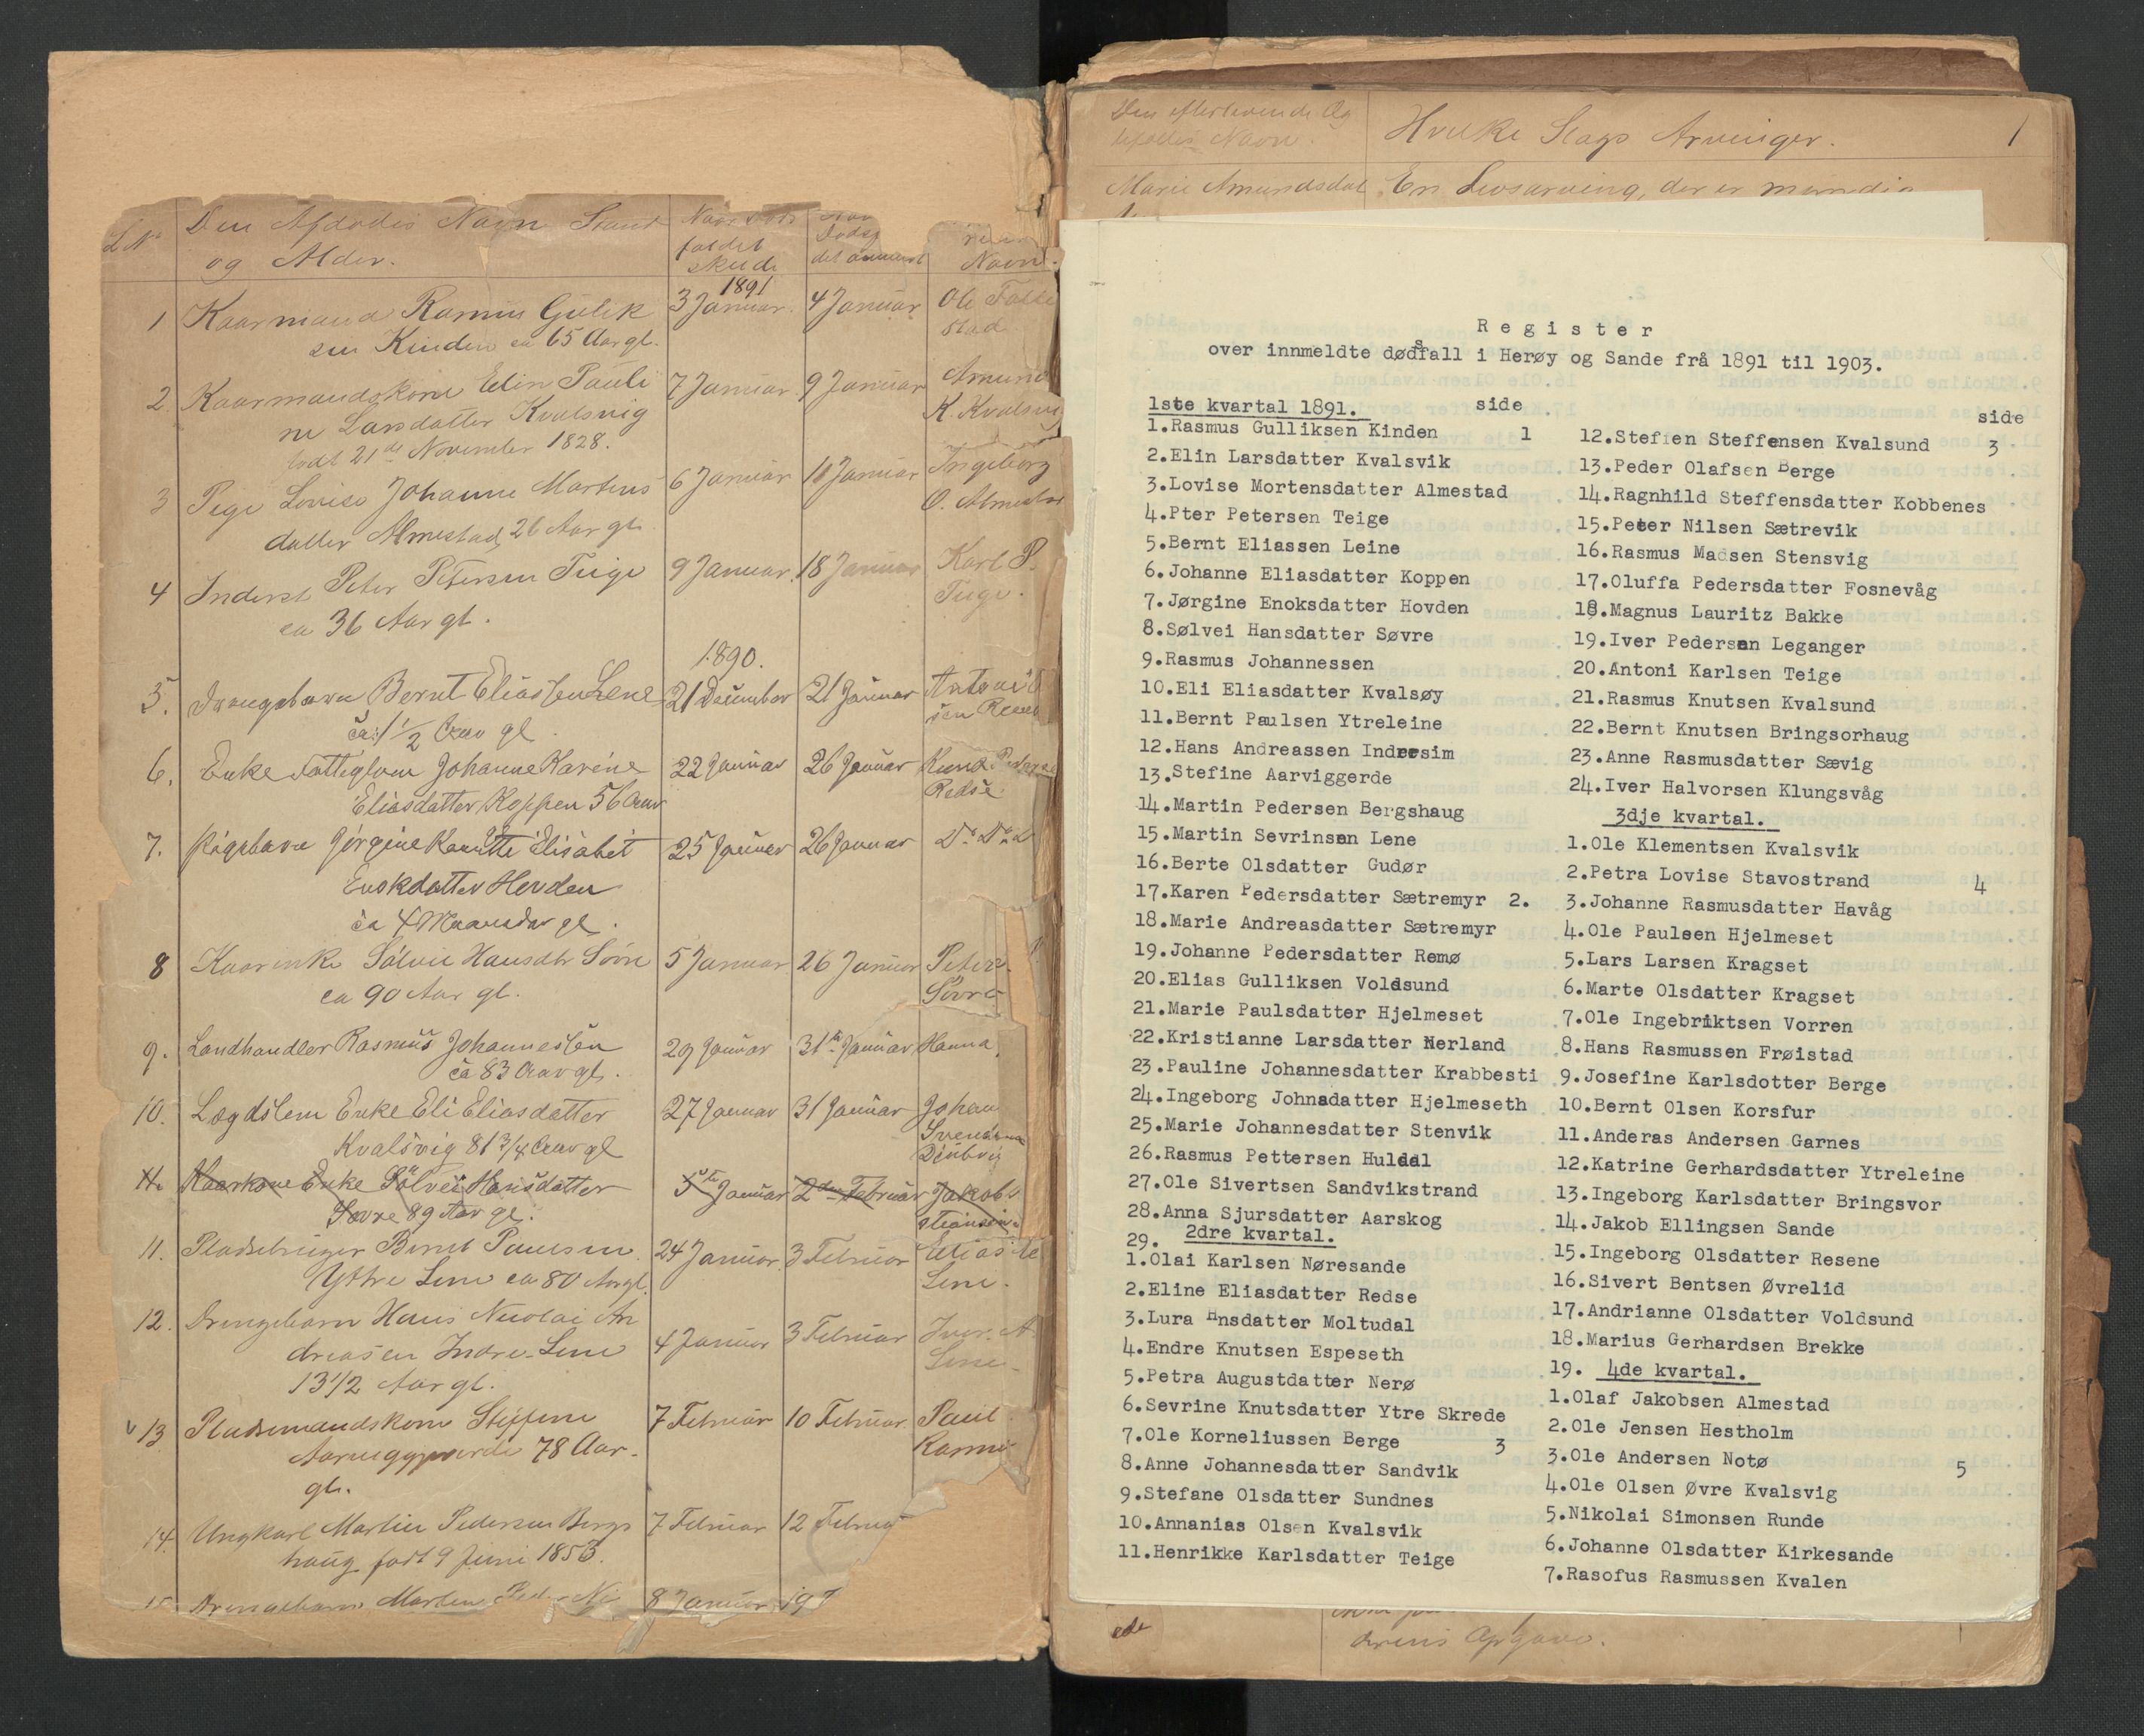 L.N. Den Afdødes Navn Stand
og Alder.
faldet
skede
Navn.
1891
1 Kaarmand Rasmus Gulik 3 Januar. 4 Januar Ole
sen Kinden ca 65 Aar gl. stad
2 Kaarmandskone Elin Pauli 7 Januar 9 Januar Amund
ne Larsdatter Kvalsvig K. Kvalsvi
født 21de November 1828.
3 Pige Lovise Johanne Martens 6 Januar 10 Januar Ingeborg
datter Almestad, 26 Aar gl. O. Almestad
4 Inderst Peter Petersen Teige 9 Januar 18 Januar Karl P.
ca 36 Aar gl. Teige.
1890.
5. Drengebarn Bernt Eliassen Lene 21 December 21 Januar
ca: 1 1/2 Aar gl.
6. Enke Fattiglem Johanne Karine 22 Januar 26 Januar Knud Peders
Eliasdatter Koppen 56 Aar Redse.
7. Pigebarn Jørgine Kanutte Elisabet 25 Januar 26 Januar Do Do
Enokdatter Hovden
ca 4 Maaneder gl.
8 Kaarenke Sølvei Hansdtr Søvre 5 Januar 26 Januar Peter
ca 90 Aar gl. Søvre
9. Landhandler Rasmus Johannessen 29 Januar 31te Januar Hanna
ca 83 Aar gl.
10. Lægdslem Enke Eli Eliasdatter 27 Januar 31 Januar Johan
Kvalsvig 81 3/4 Aar gl
11. Kaarkone Enke Sølvei Hansdatter 5te Januar 2den Februar Jakob
Søvre 89 Aar gl.
11. Pladsebruger Bernt Paulsen 24 Januar 3 Februar Elias
Ytre Lene ca 80 Aar gl. Lene.
12. Drengebarn Hans Nicolai An 4 Januar 3 Februar Iver. A
dreasen Indre-Lene Lene
13 1/2 Aar gl.
13 Pladsemandskone Steffine 7 Februar 10 Februar Paul
78 Aar Rasmu
gl.
14. Ungkarl Martin Pedersen Bergs 7 Februar 12 Februa
haug født 9 Juni 1853.
Drengebarn Marten 8 Januar 19
Den efterlevende Æg
tefælles Navn. Hvilke Slags Arvinger. 1
Marie Amundsdat En Livsarving, der er myndig
Register
over innmeldte dødsfall i Herøy og Sande frå 1891 til 1903.
1ste kvartal 1891. side
1.Rasmus Gulliksen Kinden 1
2.Elin Larsdatter Kvalsvik
3.Lovise Mortensdatter Almestad
4.Pter Petersen Teige
5.Bernt Eliassen Leine
6.Johanne Eliasdatter Koppen
7.Jørgine Enoksdatter Hovden
8.Sølvei Hansdatter Søvre
9.Rasmus Johannessen
10.Eli Eliasdatter Kvalsøy
11.Bernt Paulsen Ytreleine
12.Hans Andreassen Indresim
13.Stefine Aarviggerde
14.Martin Pedersen Bergshaug
15.Martin Sevrinsen Lene
16.Berte Olsdatter Gudør
17.Karen Pedersdatter Sætremyr 2.
18.Marie Andreasdatter Sætremyr
19.Johanne Pedersdatter Remø
20.Elias Gulliksen Voldsund
21.Marie Paulsdatter Hjelmeset
22.Kristianne Larsdatter Nerland
23.Pauline Johannesdatter Krabbesti
24.Ingeborg Johnsdatter Hjelmeseth
25.Marie Johannesdatter Stenvik
26.Rasmus Pettersen Huldal
27.Ole Sivertsen Sandvikstrand
28.Anna Sjursdatter Aarskog
29. 2dre kvartal.
1.Olai Karlsen Nøresande
2.Eline Eliasdatter Redse
3.Lura Hnsdatter Moltudal
4.Endre Knutsen Espeseth
5.Petra Augustdatter Nerø
6.Sevrine Knutsdatter Ytre Skrede
7.Ole Korneliussen Berge 3
8.Anne Johannesdatter Sandvik
9.Stefane Olsdatter Sundnes
10.Annanias Olsen Kvalsvik
11.Henrikke Karlsdatter Teige
side
12.Steffen Steffensen Kvalsund 3
13.Peder Olafsen Berge
14.Ragnhild Steffensdatter Kobbenes
15.Peter Nilsen Sætrevik
16.Rasmus Madsen Stensvig
17.Oluffa Pedersdatter Fosnevåg
18.Magnus Lauritz Bakke
19.Iver Pedersen Leganger
20.Antoni Karlsen Teige
21.Rasmus Knutsen Kvalsund
22.Bernt Knutsen Bringsorhaug
23.Anne Rasmusdatter Sævig
24.Iver Halvorsen Klungsvåg
3dje kvartal.
1.Ole Klementsen Kvalsvik
2.Petra Lovise Stavostrand 4
3.Johanne Rasmusdatter Havåg
4.Ole Paulsen Hjelmeset
5.Lars Larsen Kragset
6.Marte Olsdatter Kragset
7.Ole Ingebriktsen Vorren
8.Hans Rasmussen Frøistad
9.Josefine Karlsdotter Berge
10.Bernt Olsen Korsfur
11.Anderas Andersen Garnes
12.Katrine Gerhardsdatter Ytreleine
13.Ingeborg Karlsdatter Bringsvor
14.Jakob Ellingsen Sande
15.Ingeborg Olsdatter Resene
16.Sivert Bentsen Øvrelid
17.Andrianne Olsdatter Voldsund
18.Marius Gerhardsen Brekke
19. 4de kvartal.
1.Olaf Jakobsen Almestad
2.Ole Jensen Hestholm
3.Ole Andersen Notø 5
4.Ole Olsen Øvre Kvalsvig
5.Nikolai Simonsen Runde
6.Johanne Olsdatter Kirkesande
7.Rasofus Rasmussen Kvalen
ede
Opgave.